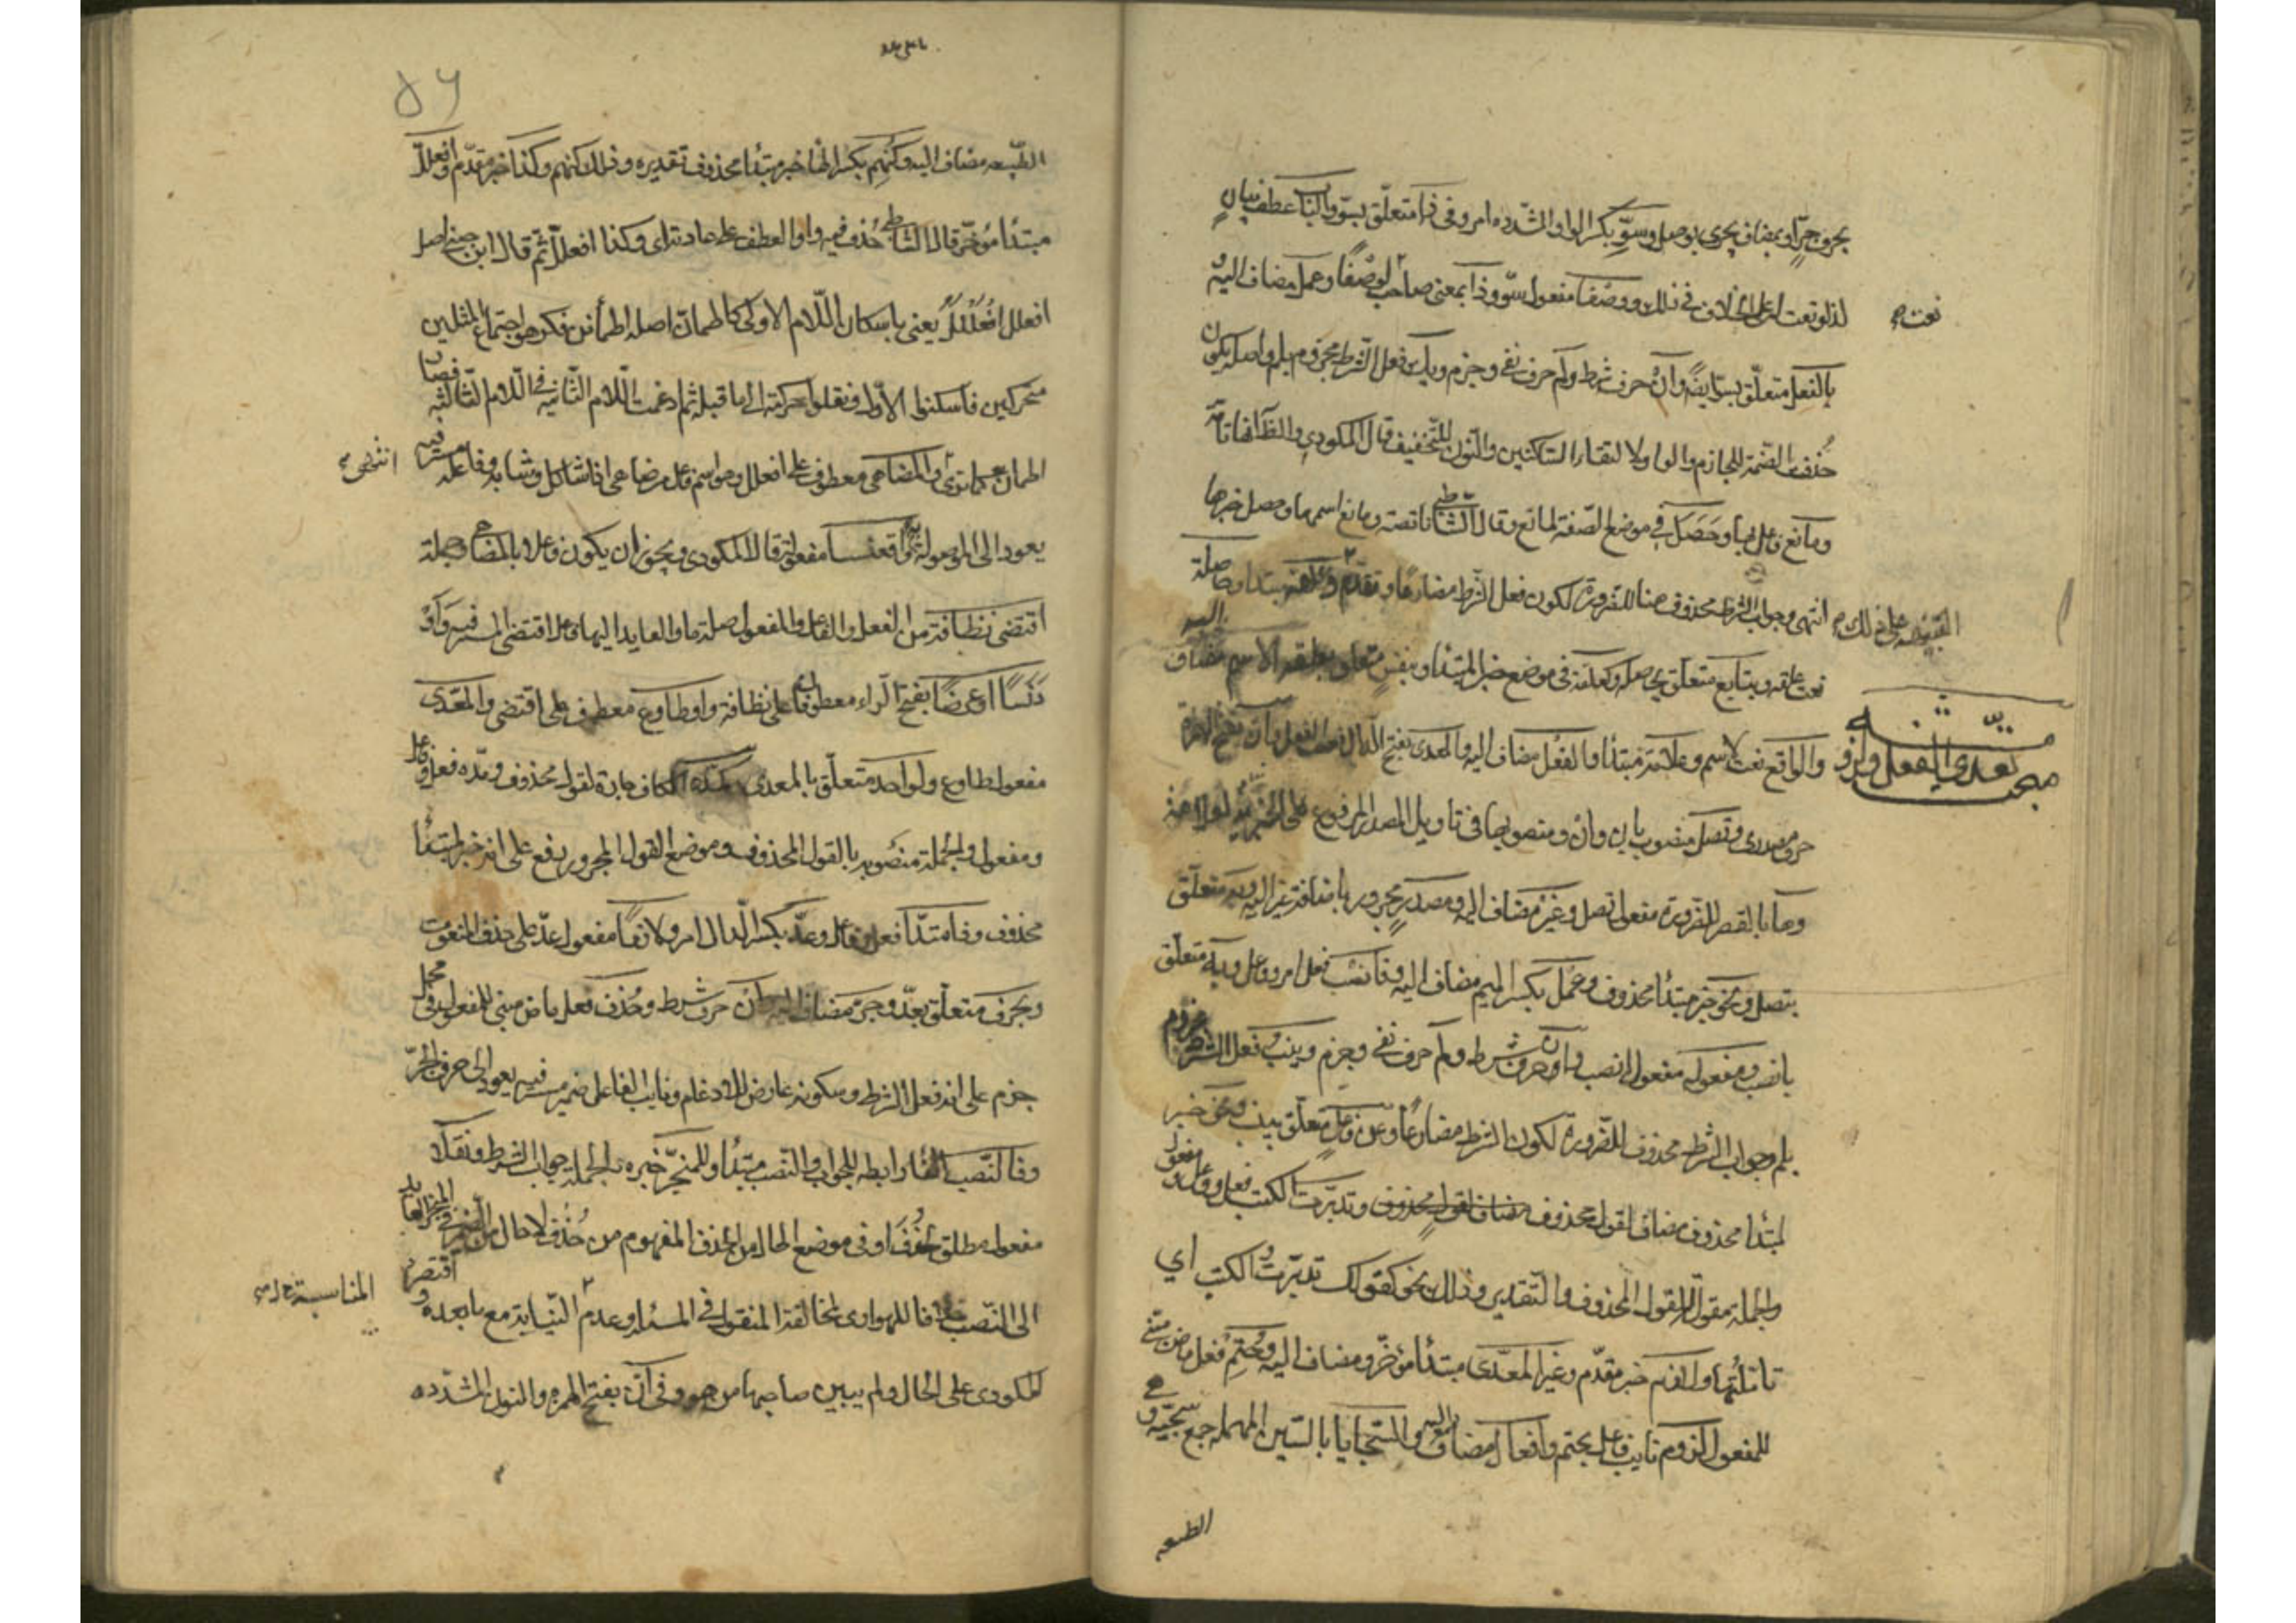 بحرف جر او بمضاف يجرى بوصل وسوّ بكسر الواو المشدده امر وفى ذا متعلّق بسوّ والبا عطف بيان
لذا او نعت له على الخلاف فى ذلك ووصفا مفعول سوّ وذا بمعنى صاحب لوصفًا وعمل مضاف اليه
نعت
بالفعل متعلّق بسوّ ايضًا وان حرف شرط ولم حرف نفى وجزم ويك فعل الشرط مجزوم بلم واصله يكون
حُذفت الضّمة للجازم والواو لالتقاء السّاكنين والنّون للتّخفيف قال المكودى والظّاهر انها تامّة
ومانع فاعل بها وحَصَل فى موضع الصّفة لمانع وقال الشّاطبى ناقصة ومانع اسمها وحصل خبرها
انتهى وجواب الشرط محذوف هنا للضّرورة لكون فعل الشرط مضارعًا وتقدّم وعلقة مبتدا وحاصلة
نعت علقه وبتابع متعلّق بحاصله وكعلقة فى موضع خبر المبتدا وبنفس متعلق بعلقه الاسم مضاف اليه
تعدى الفعل ولزومه
والواقع نعت لاسم وعلامة مبتدا والفعل مضاف اليه والمعدى بفتح الدال نعت الفعل وأن بفتح الهمزة
حرف مصدرى وتصل منصوب بان وان ومنصوبها فى تاويل المصدر المرفوع على الخبرية لعلامة
وها بالقصر للضّرورة مفعول تصل وغير مضاف اليه ومصدر مجرور باضافة غير اليه وبه متعلّق
بتصل ونحو خبر مبتدا محذوف وعمل بكسر الميم مضاف اليه فانصب فعل امر وفاعل وبه متعلّق
بانصب ومفعوله مفعول انصب وان حرف شرط ولم حرف نفى وجزم وينب فعل الشرط مجزوم
بلم وجواب الشرط محذوف للضّرورة لكون الشرط مضارعًا وعن فاعل متعلّق بينب ونحو خبر
لمبتدا محذوف مضاف لقول محذوف وتدبّرت الكتب فعل وفاعل ومفعول
والجملة مقول للقول المحذوف والتّقدير وذلك نحو كقولك تدبّرت الكتب اى
تامّلتُها ولازم خبر مقدّم وغير المعدّى مبتدا مؤخّر ومضاف اليه وحُتِم فعل ماض مبنى
للمفعول لزوم نايب فاعل بحتم وافعال مضاف اليه والسّجايا بالسّين المهملة جمع سجيّة وهى
الطبيعه
الطّبيعه مضاف اليه وكنهِم بكسر الهاء خبر مبتدا محذوف تقديره وذلك كنهم وكذا خبر مقدّم وافعللّ
مبتدا مؤخّر قال الشّاطبى حُذف فيه واو العطف على عادته اى وكذا افعللّ ثمّ قال ابن جنى اصل
افعللّ افعلَلَلَ يعنى باسكان اللّام الاولى كاطمانّ اصله اطمأنن فكرهوا اجتماع المثلين
متحركين فاسكنوا الاوّل ونقلوا حركته الى ما قبله ثم ادغمت اللّام الثّانيه فى اللّام الثّالثه فصار
اطمانّ كما ترى والمضاهى معطوف على افعلل وهو اسم فاعل من ضاهى اذا شاكل وشابه وفاعله مستتر فيه
انتهى
يعود الى ال الموصولة واقعنسسا مفعوله قال المكودى ويجوز ان يكون فاعلا بالمضاهى وجملة
اقتضى نظافة من الفعل والفاعل والمفعول صلة ما والعايد اليها فاعل اقتضى المستتر فيه وَأوْ
دَنَسًا او عرضًا بفتح الرّاء معطوفان على نظافة واو طاوع معطوف على اقتضى والمعدّى
مفعول طاوع ولواحد متعلّق بالمعدى كمدّه الكاف جارة لقول محذوف ومدّه فعل وفاعل
ومفعول والجملة منصوبه بالقول المحذوف وموضع القول المجرور رفع على انه خبر لمبتدا
محذوف وفامتدّا فعل وفاعل وعدّ بكسر الدال امر ولازمًا مفعول عدّ على حذف المنعوت
وبحرف متعلّق بعدّ وجر مضاف اليه وان حرف شرط وحُذف فعل ماض مبنى للمفعول فى محل
جزم على انه فعل الشرط وسكونه عارض للادغام ونايب الفاعل ضمير مستتر فيه يعود الى حرف الجرّ
وفالنّصب الفا رابطه للجواب والنّصب مبتدا وللمنجرّ خبره والجملة جواب الشرط ونقلا
مفعول مطلق لحُذِف او فى موضع الحال من الحذف المفهوم من حُذِف لا حال من الضّمير فى المنجر العايد
الى النّصب خلافا للهوارى لمخالفة المنقول فى المسئلة وعدم النّيابة مع ما بعده واقتصر
المناسبة
المكودى على الحال ولم يبين صاحبها من هو وفى أنّ بفتح الهمزه والنون المشدّده